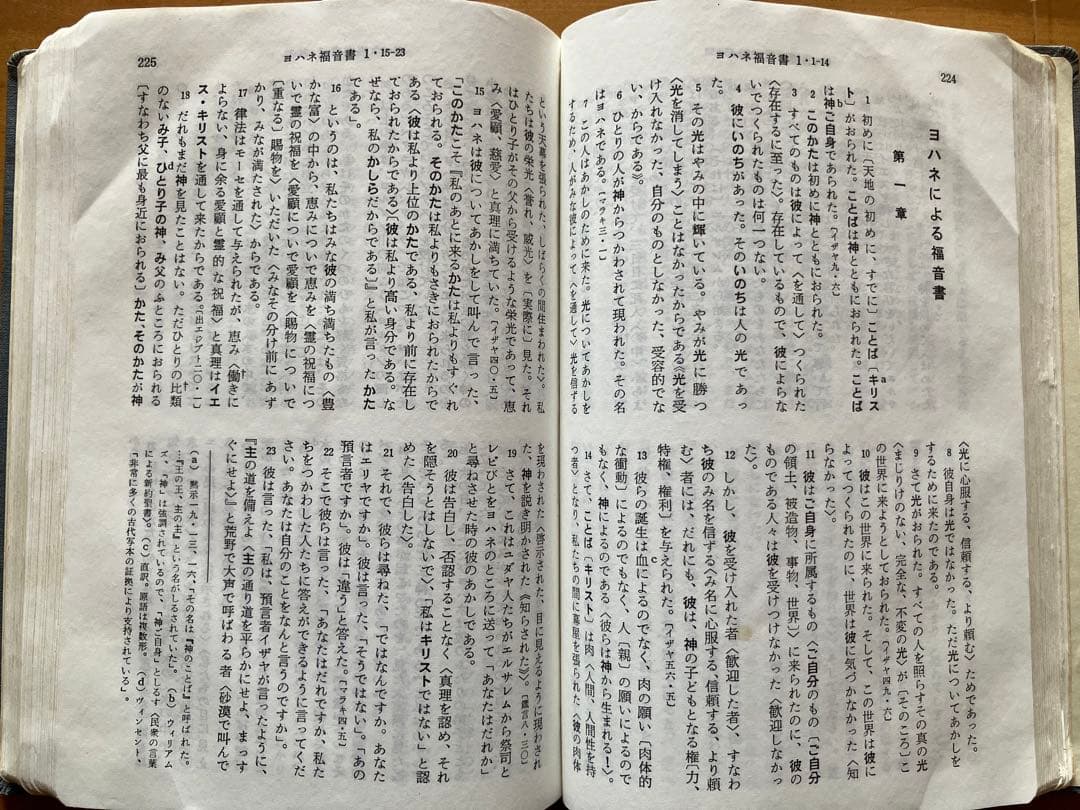 224
ヨハネ福音書 1・1-14
ヨハネによる福音書
第一章
1 初めに〔天地の初めに、すでに〕ことば〔キリス
ト〕がおられた。ことばは神とともにおられた。ことば
は神ご自身であられた。〔イザヤ九・六〕
2 このかたは初めに神とともにおられた。
3 すべてのものは彼によって〈を通して〉つくられた
〈存在するに至った〉。存在しているもので、彼によらな
いでつくられたものは何一つない。
4 彼にいのちがあった。そのいのちは人の光であっ
た。
5 その光はやみの中に輝いている。やみが光に勝つ
〈光を消してしまう〉ことはなかったからである《光を受
け入れなかった、自分のものとしなかった、受容的でな
い、からである》。
6 ひとりの人が神からつかわされて現われた。その名
はヨハネである。〔マラキ三・一〕
7 この人はあかしのために来た。光についてあかしを
するため、人がみな彼によって〈を通して〉光を信ずる
〈光に心服する、信頼する、より頼む〉ためであった。
8 彼自身は光ではなかった。ただ光についてあかしを
するために来たのである。
9 さて光がおられた。すべての人を照らすその真の光
〈まじりけのない、完全な、不変の光〉が〔そのころ〕こ
の世界に来ようとしておられた。〔イザヤ四九・六〕
10 彼はこの世界に来られた。そして、この世界は彼に
よってつくられたのに、世界は彼に気づかなかった〈知
らなかった〉。
11 彼はご自身に所属するもの〈ご自分のもの〔ご自分
の領土、被造物、事物、世界〕〉に来られたのに、彼の
ものである人々は彼を受けつけなかった〈歓迎しなかっ
た〉。
12 しかし、彼を受け入れた者〈歓迎した者〉、すなわ
ち彼のみ名を信ずる〈み名に心服する、信頼する、より頼
む〉者には、だれにも、彼は、神の子どもとなる権〔力、
特権、権利〕を与えられた。〔イザヤ五六・五〕
13 彼らの誕生は血によるのでなく、肉の願い〔肉体的
な衝動〕によるのでもなく、人〔親〕の願いによるので
もなく、神によるのである〈彼らは神から生まれる!〉。
14 さて、ことば〔キリスト〕は肉〈人間、人間性を持
つ者〉となり、私たちの間に幕屋を張られた〈彼の肉体
225
ヨハネ福音書 1・15-23
という天幕を張られた、しばらくの間住まわれた〉。私
たちは彼の栄光〈誉れ、威光〉を〔実際に〕見た。それ
はひとり子がその父から受けるような栄光であって、恵
み〈愛顧、慈愛〉と真理に満ちていた。〔イザヤ四〇・五〕
15 ヨハネは彼についてあかしをして叫んで言った、
「このかたこそ『私のあとに来るかたは私よりもすぐれ
ておられる。そのかたは私よりもさきにおられたからで
ある〈彼は私より上位のかたである、私より前に存在し
ておられたからである〉〔彼は私より高い身分である。な
ぜなら、私のかしらだからである〕』と私が言ったかた
である」。
16 というのは、私たちはみな彼の満ち満ちたもの〈豊
かな富〉の中から、恵みについで恵みを〈霊の祝福につ
いで霊の祝福を〈愛顧についで愛顧を〈賜物についで
〔重なる〕賜物を〉いただいた〈みなその分け前にあず
かり、みなが満たされた〉からである。
17 律法はモーセを通して与えられたが、恵み〈働きに
よらない、身に余る愛顧と霊的な祝福〉と真理はイエ
ス・キリストを通して来たからである。〔出エジプト二〇・一〕
18 だれもまだ神を見たことはない。ただひとりの比類
のないみ子、ひとり子の神、み父のふところにおられる
〔すなわち父に最も身近におられる〕かた、そのかたが神
を現わされた〈啓示された、目に見えるように現わされ
た、神を説き明かされた《知らされた》〉。〔箴言八・三〇〕
19 さて、これはユダヤ人たちがエルサレムから祭司と
レビびとをヨハネのところに送って「あなたはだれか」
と尋ねさせた時の彼のあかしである。
20 彼は告白し、否認することなく〈真理を認め、それ
を隠そうとはしないで〉、「私はキリストではない」と認
めた〈告白した〉。
21 それで、彼らは尋ねた、「ではなんですか。あなた
はエリヤですか」。彼は言った、「そうではない」。「あの
預言者ですか」。彼は「違う」と答えた。〔マラキ四・五〕
22 そこで彼らは言った、「あなたはだれですか、私た
ちをつかわした人たちに答えができるように言ってくだ
さい。あなたは自分のことをなんと言うのですか」。
23 彼は言った、「私は、預言者イザヤが言ったように、
『主の道を備えよ〈主の通り道を平らかにせよ、まっす
ぐにせよ〉』と荒野で大声で呼ばわる者〈砂漠で叫んで
(a) 黙示一九・一三、一六、「その名は『神のことば』と呼ばれた。
…『王の王、主の主』という名がしるされていた」。 (b) ウィリアム
ズ、「『神』は強調されているので、『神ご自身』とした」〈民衆の言葉
による新約聖書〉。 (c) 直訳。原語は複数形。 (d) ヴィンセント、
「非常に多くの古代写本の証拠により支持されている」。